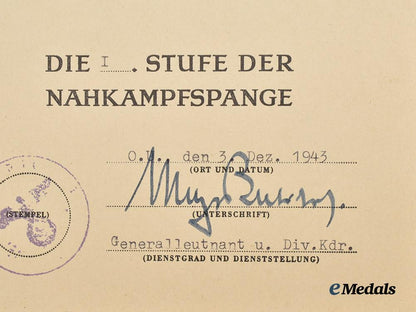 DIE I. STUFE DER
NAHKAMPFSPANGE
O.U. den 3. Dez. 1943
(ORT UND DATUM)
(STEMPEL)
(UNTERSCHRIFT)
Generalleutnant u. Div.Kdr.
(DIENSTGRAD UND DIENSTSTELLUNG)
eMedals